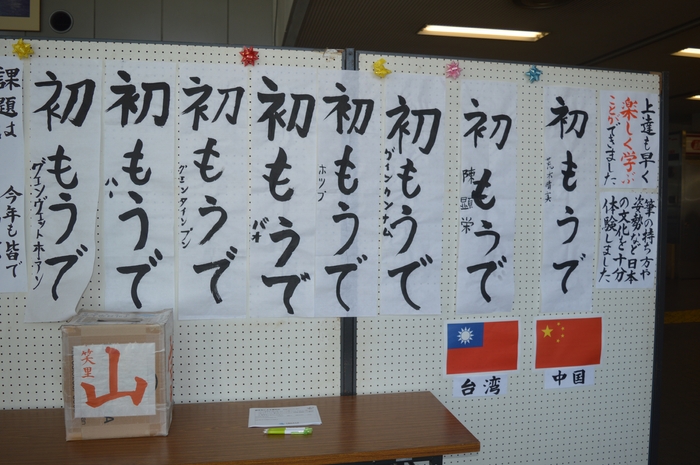 上達も早く
楽しく学ぶ
ことができました
筆の持ち方や
姿勢など日本
の文化を十分
体験しました
初もうで
初もうで
陳顕栄
初もうで
グインケンナム
初もうで
ホップ
初もうで
バオ
初もうで
グエンタインブン
初もうで
ハー
初もうで
グエンヴェットホーアン
課題は
今年も皆で
台湾
中国
笑里
山